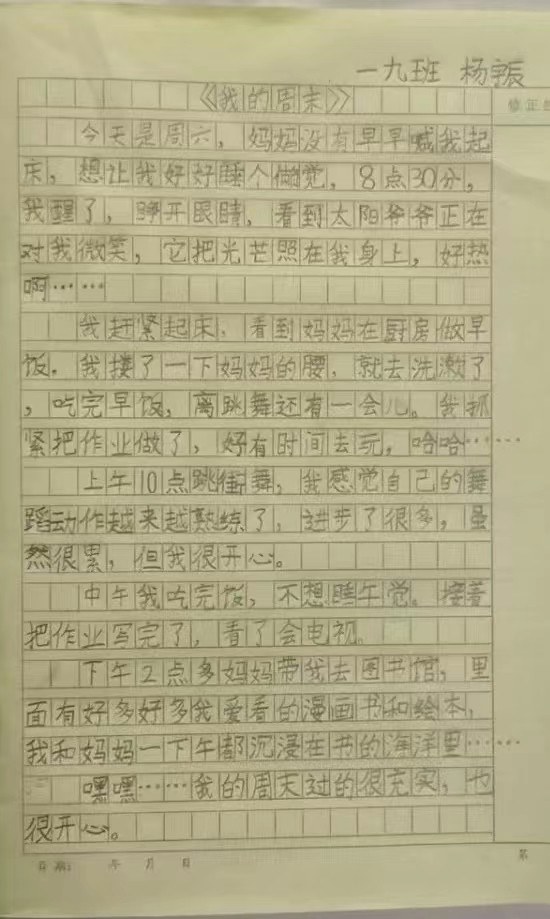 一九班 杨宇辰
修正
《我的周末》
今天是周六，妈妈没有早早喊我起
床，想让我好好睡个懒觉，8点30分，
我醒了，睁开眼睛，看到太阳爷爷正在
对我微笑，它把光芒照在我身上，好热
啊……
我赶紧起床，看到妈妈在厨房做早
饭。我搂了一下妈妈的腰，就去洗漱了
，吃完早饭，离跳舞还有一会儿。我抓
紧把作业做了，好有时间去玩，哈哈……
上午10点跳街舞，我感觉自己的舞
蹈动作越来越熟练了，进步了很多，虽
然很累，但我很开心。
中午我吃完饭，不想睡午觉。接着
把作业写完了，看了会电视。
下午2点多妈妈带我去图书馆，里
面有好多好多我爱看的漫画书和绘本，
我和妈妈一下午都沉浸在书的海洋里……
嘿嘿……我的周末过的很充实，也
很开心。
日期： 年 月 日
第